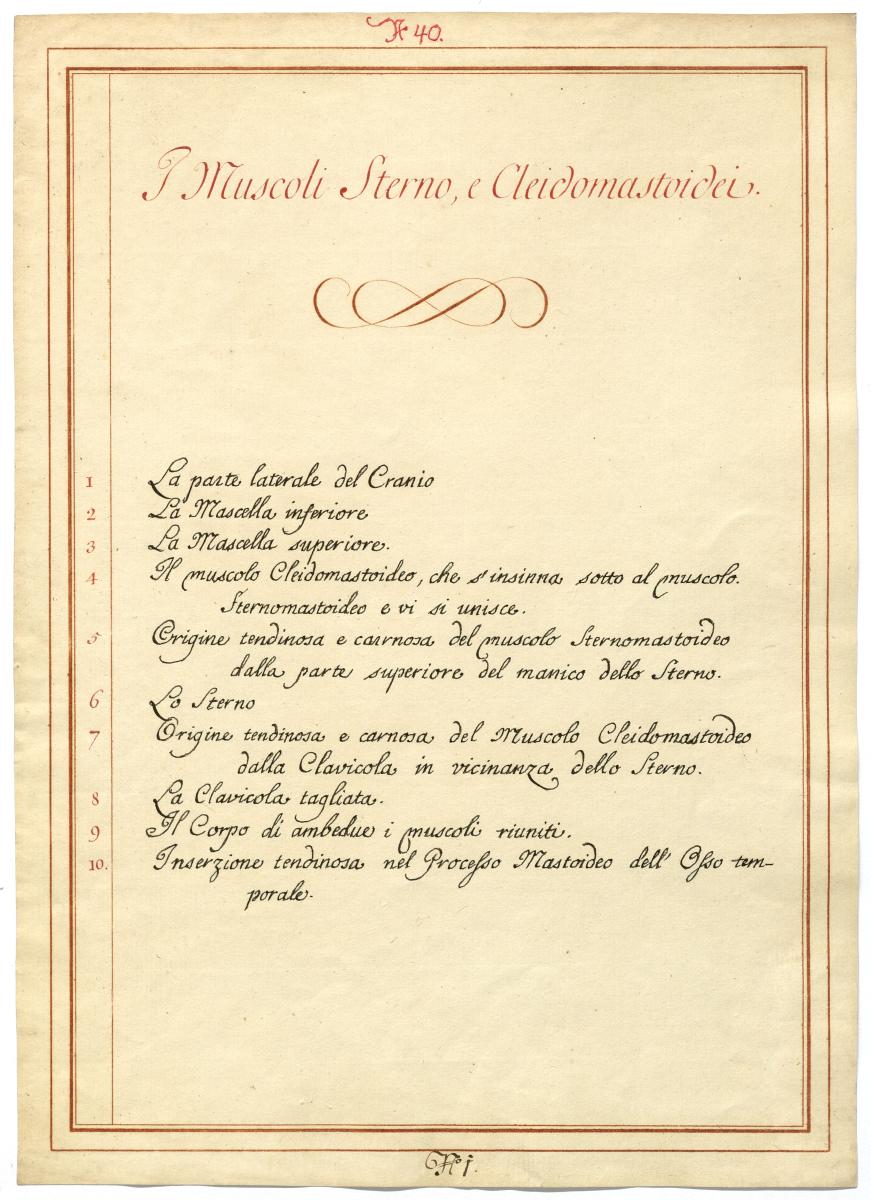 N 40.
I Muscoli Sterno, e Cleidomastoidei.
1 La parte laterale del Cranio
2 La Mascella inferiore
3 La Mascella superiore.
4 Il muscolo Cleidomastoideo, che s'insinna sotto al muscolo.
Sternomastoideo e vi si unisce.
5 Origine tendinosa e carnosa del muscolo Sternomastoideo
dalla parte superiore del manico dello Sterno.
6 Lo Sterno
7 Origine tendinosa e carnosa del Muscolo Cleidomastoideo
dalla Clavicola in vicinanza dello Sterno.
8 La Clavicola tagliata.
9 Il Corpo di ambedue i muscoli riuniti.
10. Inserzione tendinosa nel Processo Mastoideo dell' Osso tem-
porale.
No 1.